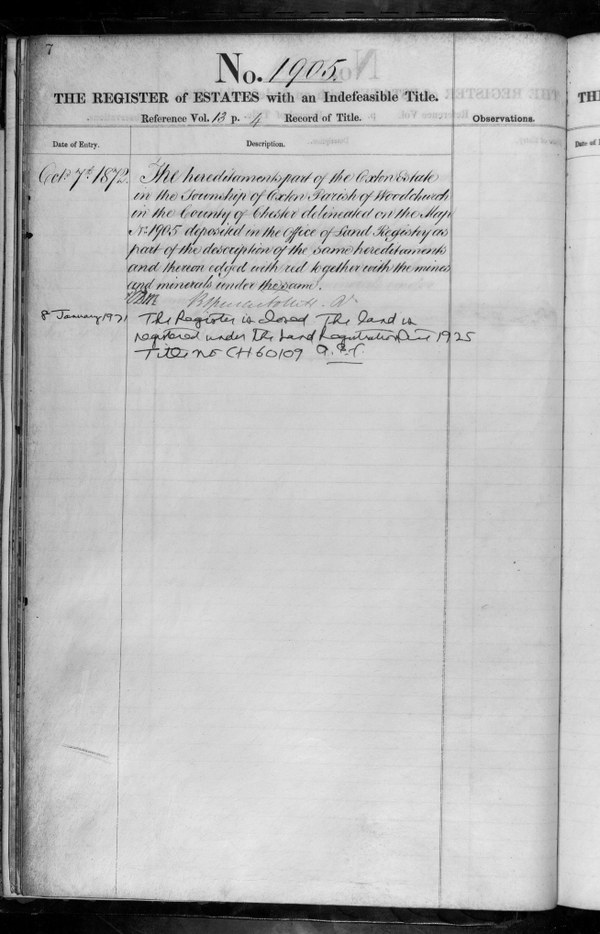 7
No. 1905.
THE REGISTER of ESTATES with an Indefeasible Title.
Reference Vol. 13 p. 4 Record of Title.
Observations.
Date of Entry.
Description.
Octr. 7th 1872.
The hereditaments part of the Oxton Estate
in the Township of Oxton Parish of Woodchurch
in the County of Chester delineated on the Map
No. 1905 deposited in the Office of Land Registry as
part of the description of the same hereditaments
and thereon edged with red together with the mines
and minerals under the same.
8th January 1971
The Register is closed The land is
registered under the Land Registration Act 1925
Title No CH60109
THE
Date of